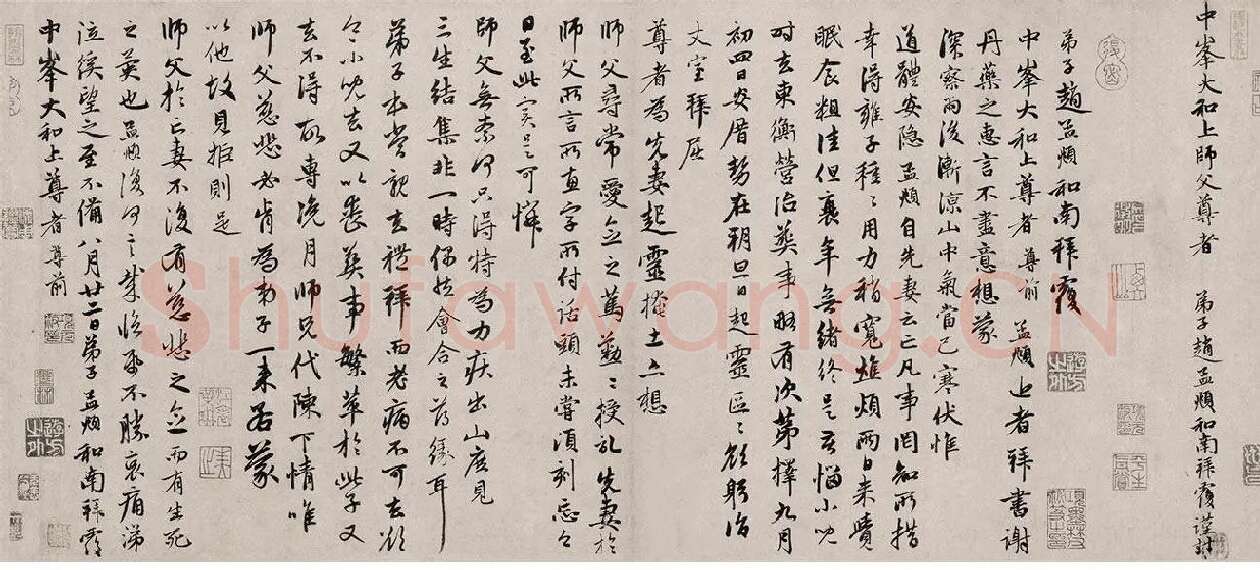 中峯大和上師父尊者 弟子趙孟頫和南拜覆謹封
弟子趙孟頫和南拜覆
中峯大和上尊者尊前 孟頫上者拜書謝
丹藥之惠言不盡意想蒙
深察雨後漸涼山中氣當已寒伏惟
道體安隱孟頫自先妻云亡凡事罔知所措
幸得雍子種種用力稍寬焦煩兩日來嘖
眠食粗佳但衰年無緒終是苦惱小兒
時去東衡營治葬事略有次第擇九月
初四日安厝勢在朝旦日起靈區區欲躬詣
丈室拜屈
尊者為先妻起靈掩土亡想
師父尋常愛念之篤懃懃授記先妻於
師父所言所直字所付話頭未嘗頃刻忘之
日至此實是可憐
師父無奈何只得特為力疾出山庶見
三生結集非一時偶然會合之薄緣耳
弟子本當親去禮拜而老病不可去欲
令小兒去又以喪葬事繁萃於此子又
去不得故專浼月師兄代陳下情唯
師父慈悲必肯為弟子一來若蒙
以他故見拒則是
師父於亡妻不復有慈悲之念而有生死
之異也孟頫復何言哉臨紙不勝哀痛涕
泣俟望之至不備八月廿二日弟子孟頫和南拜覆
中峯大和上尊者尊前
Shufawang.CN